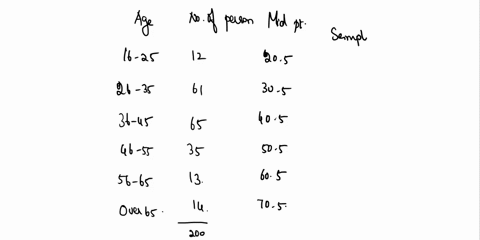 Age no. of person Mid pt. Sampl
16-25 12 20.5
26-35 61 30.5
36-45 65 40.5
46-55 35 50.5
56-65 13. 60.5
Over 65. 14. 70.5
200